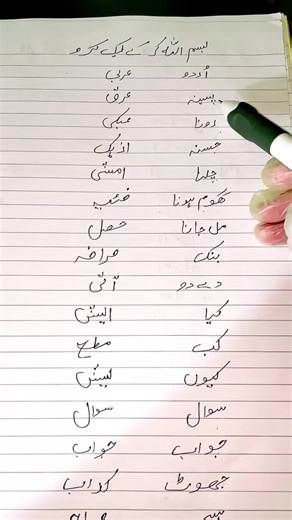 بسم اللہ کر کے لیک کرو
اُردو عربی
پسینہ عرق
رونا مبکی
ہسنہ اذہک
چلنا امشی
گھوم ہونا
مل جانا حصل
بنک صرافہ
دے دو آتی
کیا الیش
کب مطح
کیوں لیش
سوال سوال
جواب جواب
جھوٹا کذاب